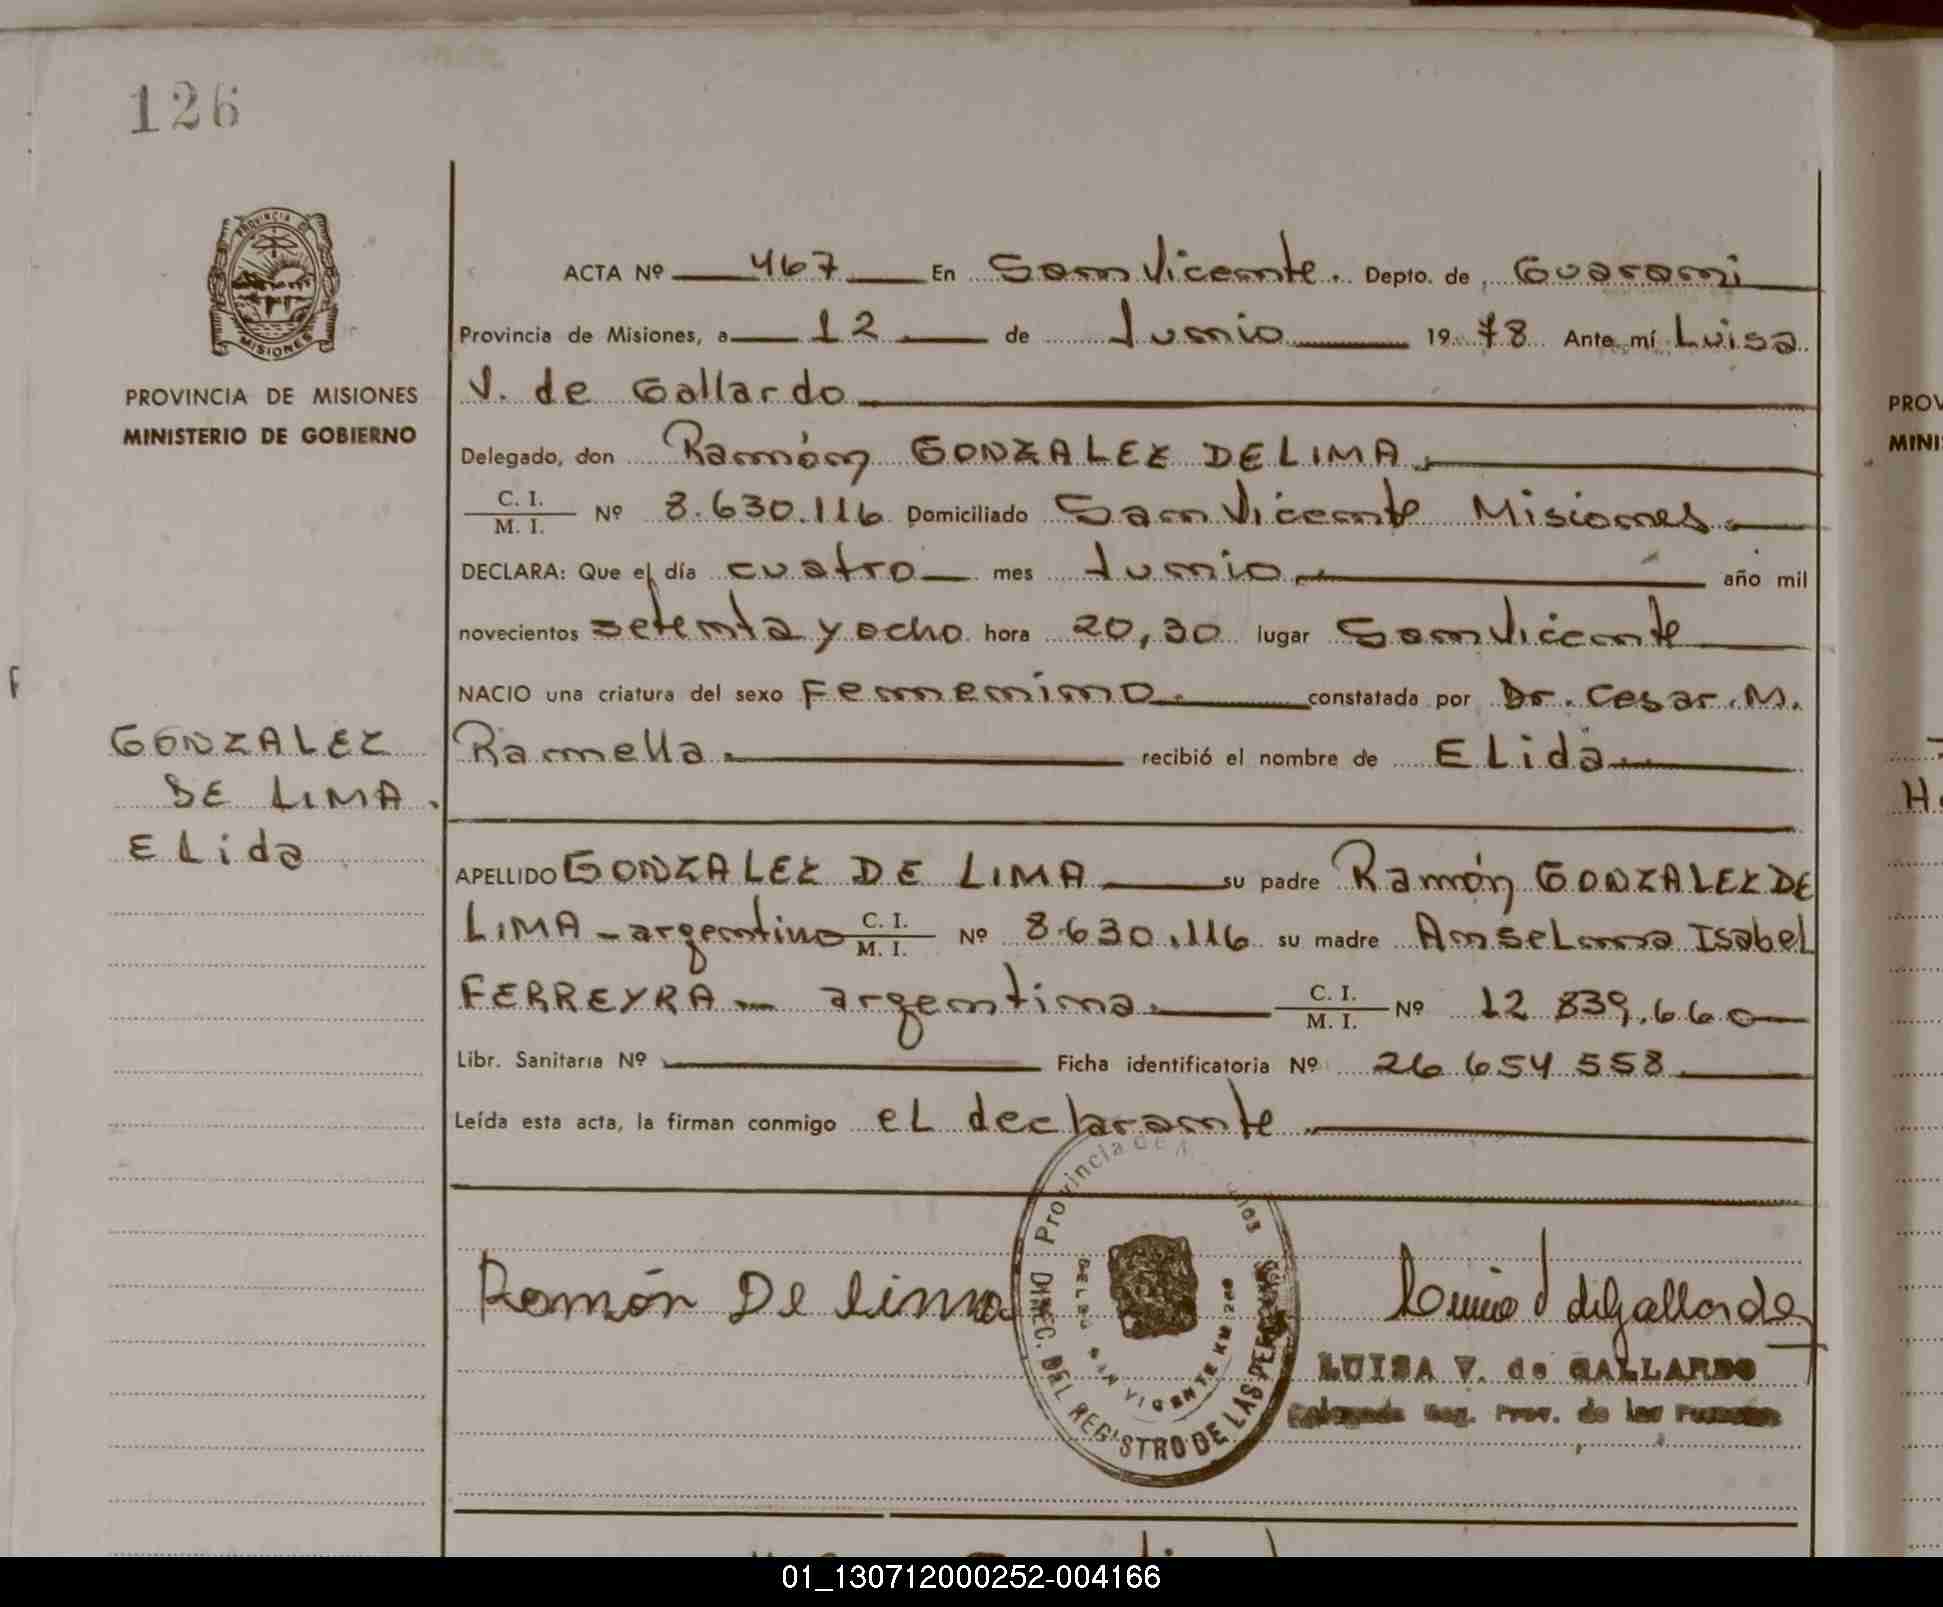 126
PROVINCIA DE MISIONES
PROVINCIA DE MISIONES
MINISTERIO DE GOBIERNO
ACTA Nº 467 En San Vicente. Depto. de Guarani
Provincia de Misiones, a 12 de Junio 1978 Ante mí Luisa
V. de Gallardo
Delegado, don Ramón GONZALEZ DE LIMA.
C. I.
M. I. Nº 8.630.116 Domiciliado San Vicente Misiones.
DECLARA: Que el día cuatro mes Junio año mil
novecientos setenta y ocho hora 20,30 lugar San Vicente
NACIO una criatura del sexo Femenino. constatada por Dr. Cesar. M.
Ramella recibió el nombre de ELida
GONZALEZ
DE LIMA.
ELida
APELLIDO GONZALEZ DE LIMA su padre Ramón GONZALEZ DE
LIMA - argentino C. I. M. I. Nº 8.630.116 su madre AnseLma IsabeL
FERREYRA - argentina. C. I. M. I. Nº 12 839.660
Libr. Sanitaria Nº Ficha identificatoria Nº 26 654 558
Leída esta acta, la firman conmigo eL declarante
Provincia de
DIREC. DEL REGISTRO DE LAS PERSONAS
SAN VICENTE KM
Ramón De lima
LUISA V. de GALLARDO
PROV
MINI
01_130712000252-004166